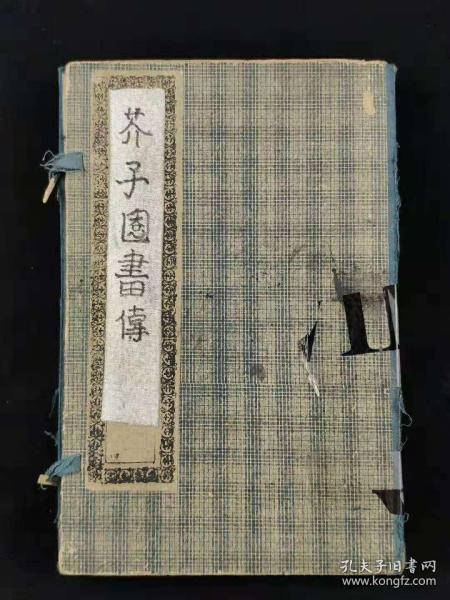 芥子园畫傳
孔夫子旧书网
www.kongfz.com